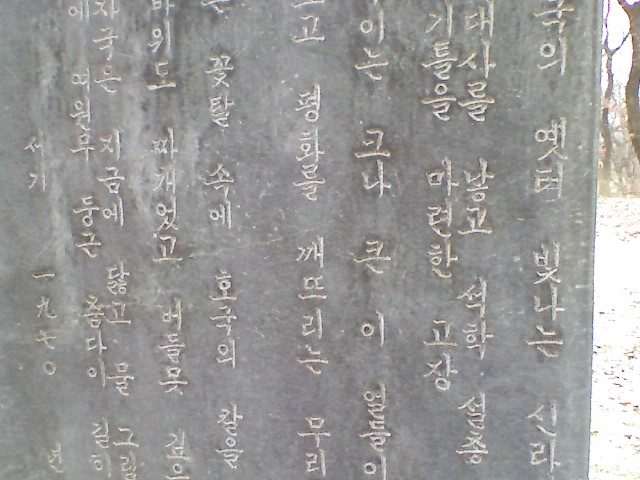 국의 옛터 빛나는 신라
대사를 낳고 석학 설총
기틀을 마련한 고장
이는 크나 큰 이 얼들이
고 평화를 깨뜨리는 무리
꽃탈 속에 호국의 칼을
바위도 짜개었고 버들못 깊으
자국은 지금에 닮고 물 그림
에 여원무 둥근 춤다이 길이
서기 一九七〇 년